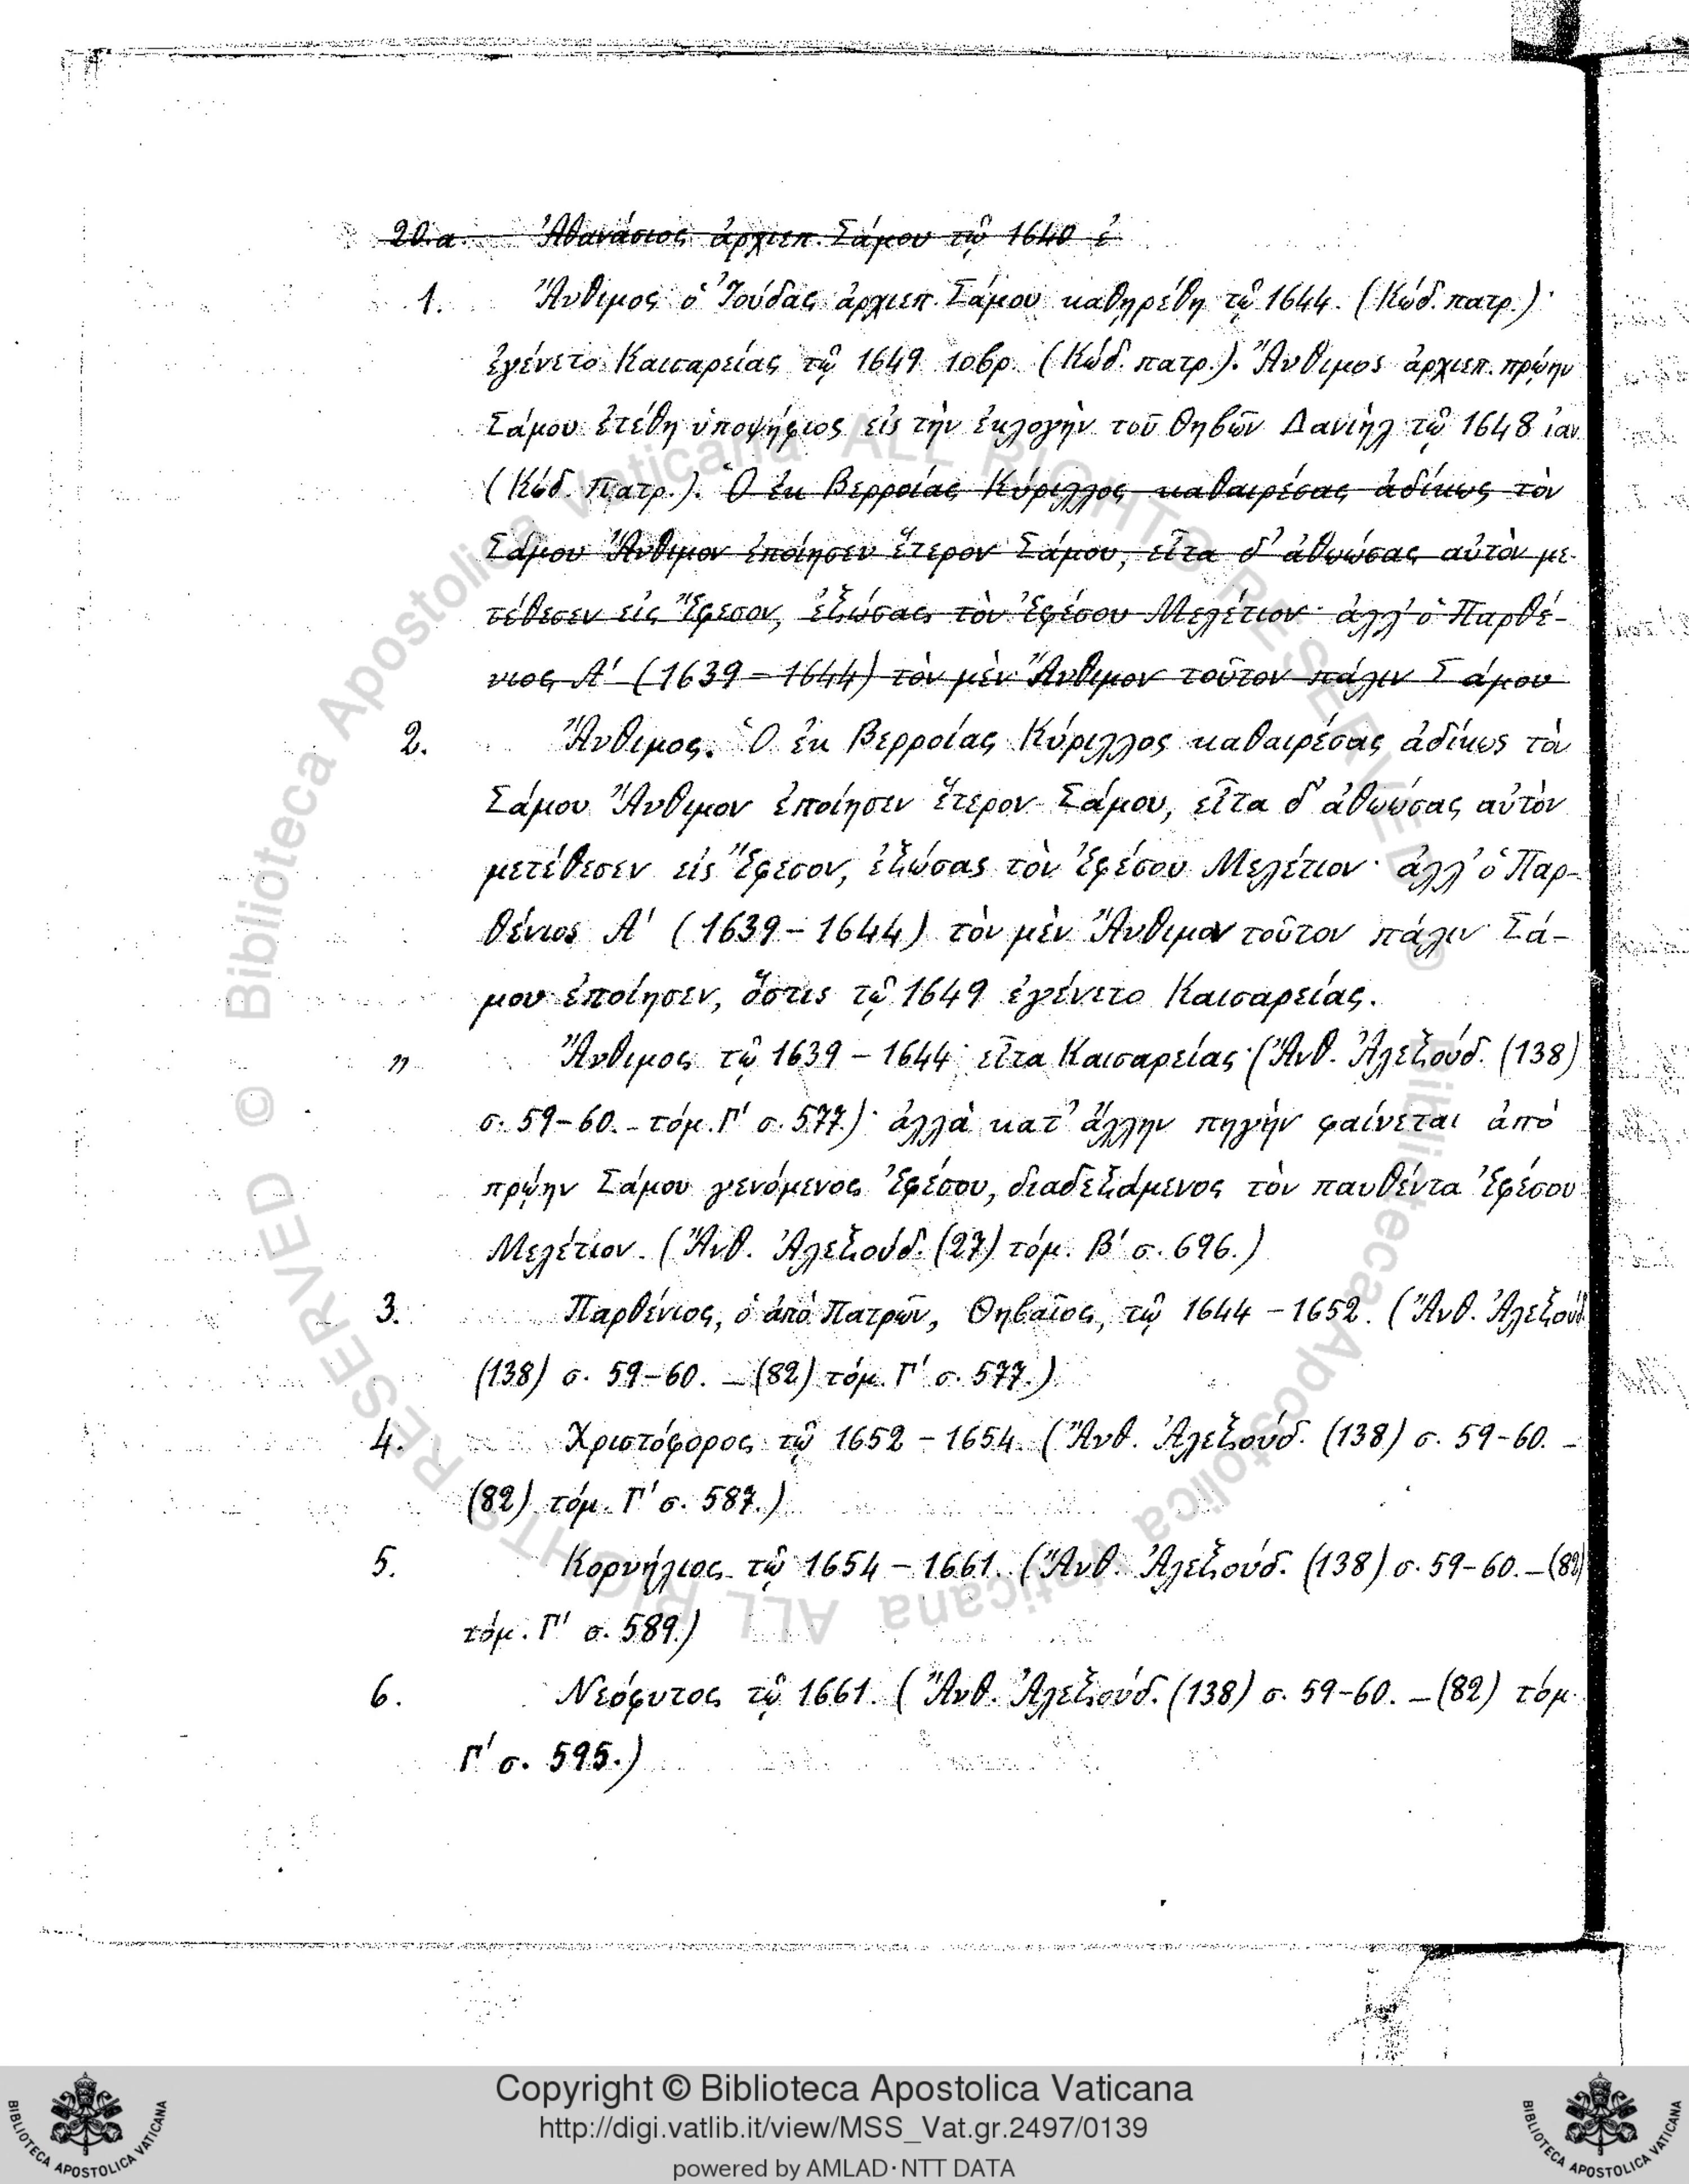 20.α. Ἀθανάσιος ἀρχιεπ. Σάμου τῷ 1640 ἐ
1. Ἄνθιμος ὁ Ἰούδας ἀρχιεπ. Σάμου καθῃρέθη τῷ 1644. (Κώδ. πατρ.)·
ἐγένετο Καισαρείας τῷ 1649 10βρ. (Κώδ. πατρ.). Ἄνθιμος ἀρχιεπ. πρῴην
Σάμου ἐτέθη ὑποψήφιος εἰς τὴν ἐκλογὴν τοῦ Θηβῶν Δανιὴλ τῷ 1648 ἰαν
(Κώδ. Πατρ.). Ὁ ἐκ Βερροίας Κύριλλος καθαιρέσας ἀδίκως τὸν
Σάμου Ἄνθιμον ἐποίησεν ἕτερον Σάμου, εἶτα δ' ἀθωώσας αὐτὸν με-
τέθεσεν εἰς Ἔφεσον, ἐξώσας τὸν Ἐφέσου Μελέτιον· ἀλλ' ὁ Παρθέ-
νιος Α' (1639 - 1644) τὸν μὲν Ἄνθιμον τοῦτον πάλιν Σάμου
2. Ἄνθιμος. Ὁ ἐκ Βερροίας Κύριλλος καθαιρέσας ἀδίκως τὸν
Σάμου Ἄνθιμον ἐποίησεν ἕτερον Σάμου, εἶτα δ' ἀθωώσας αὐτὸν
μετέθεσεν εἰς Ἔφεσον, ἐξώσας τὸν Ἐφέσου Μελέτιον· ἀλλ' ὁ Παρ-
θένιος Α' (1639 - 1644) τὸν μὲν Ἄνθιμον τοῦτον πάλιν Σά-
μου ἐποίησεν, ὅστις τῷ 1649 ἐγένετο Καισαρείας.
〃 Ἄνθιμος τῷ 1639 - 1644· εἶτα Καισαρείας· (Ἄνθ. Ἀλεξούδ. (138)
σ. 59-60. - τόμ. Γ' σ. 577.)· ἀλλὰ κατ' ἄλλην πηγὴν φαίνεται ἀπὸ
πρῴην Σάμου γενόμενος Ἐφέσου, διαδεξάμενος τὸν παυθέντα Ἐφέσου
Μελέτιον. (Ἄνθ. Ἀλεξούδ. (27) τόμ. Β' σ. 696.)
3. Παρθένιος, ὁ ἀπὸ Πατρῶν, Θηβαῖος, τῷ 1644 - 1652. (Ἄνθ. Ἀλεξούδ
(138) σ. 59-60. - (82) τόμ. Γ' σ. 577.)
4. Χριστόφορος τῷ 1652 - 1654. (Ἄνθ. Ἀλεξούδ. (138) σ. 59-60. -
(82) τόμ. Γ' σ. 587.)
5. Κορνήλιος τῷ 1654 - 1661. (Ἄνθ. Ἀλεξούδ. (138) σ. 59-60. - (82)
τόμ. Γ' σ. 589.)
6. Νεόφυτος τῷ 1661. (Ἄνθ. Ἀλεξούδ. (138) σ. 59-60. - (82) τόμ.
Γ' σ. 595.)
© Biblioteca Apostolica Vaticana ALL RIGHTS RESERVED
© Biblioteca Apostolica Vaticana ALL RIGHTS RESERVED
Copyright © Biblioteca Apostolica Vaticana
http://digi.vatlib.it/view/MSS_Vat.gr.2497/0139
powered by AMLAD·NTT DATA
BIBLIOTECA APOSTOLICA VATICANA
BIBLIOTECA APOSTOLICA VATICANA